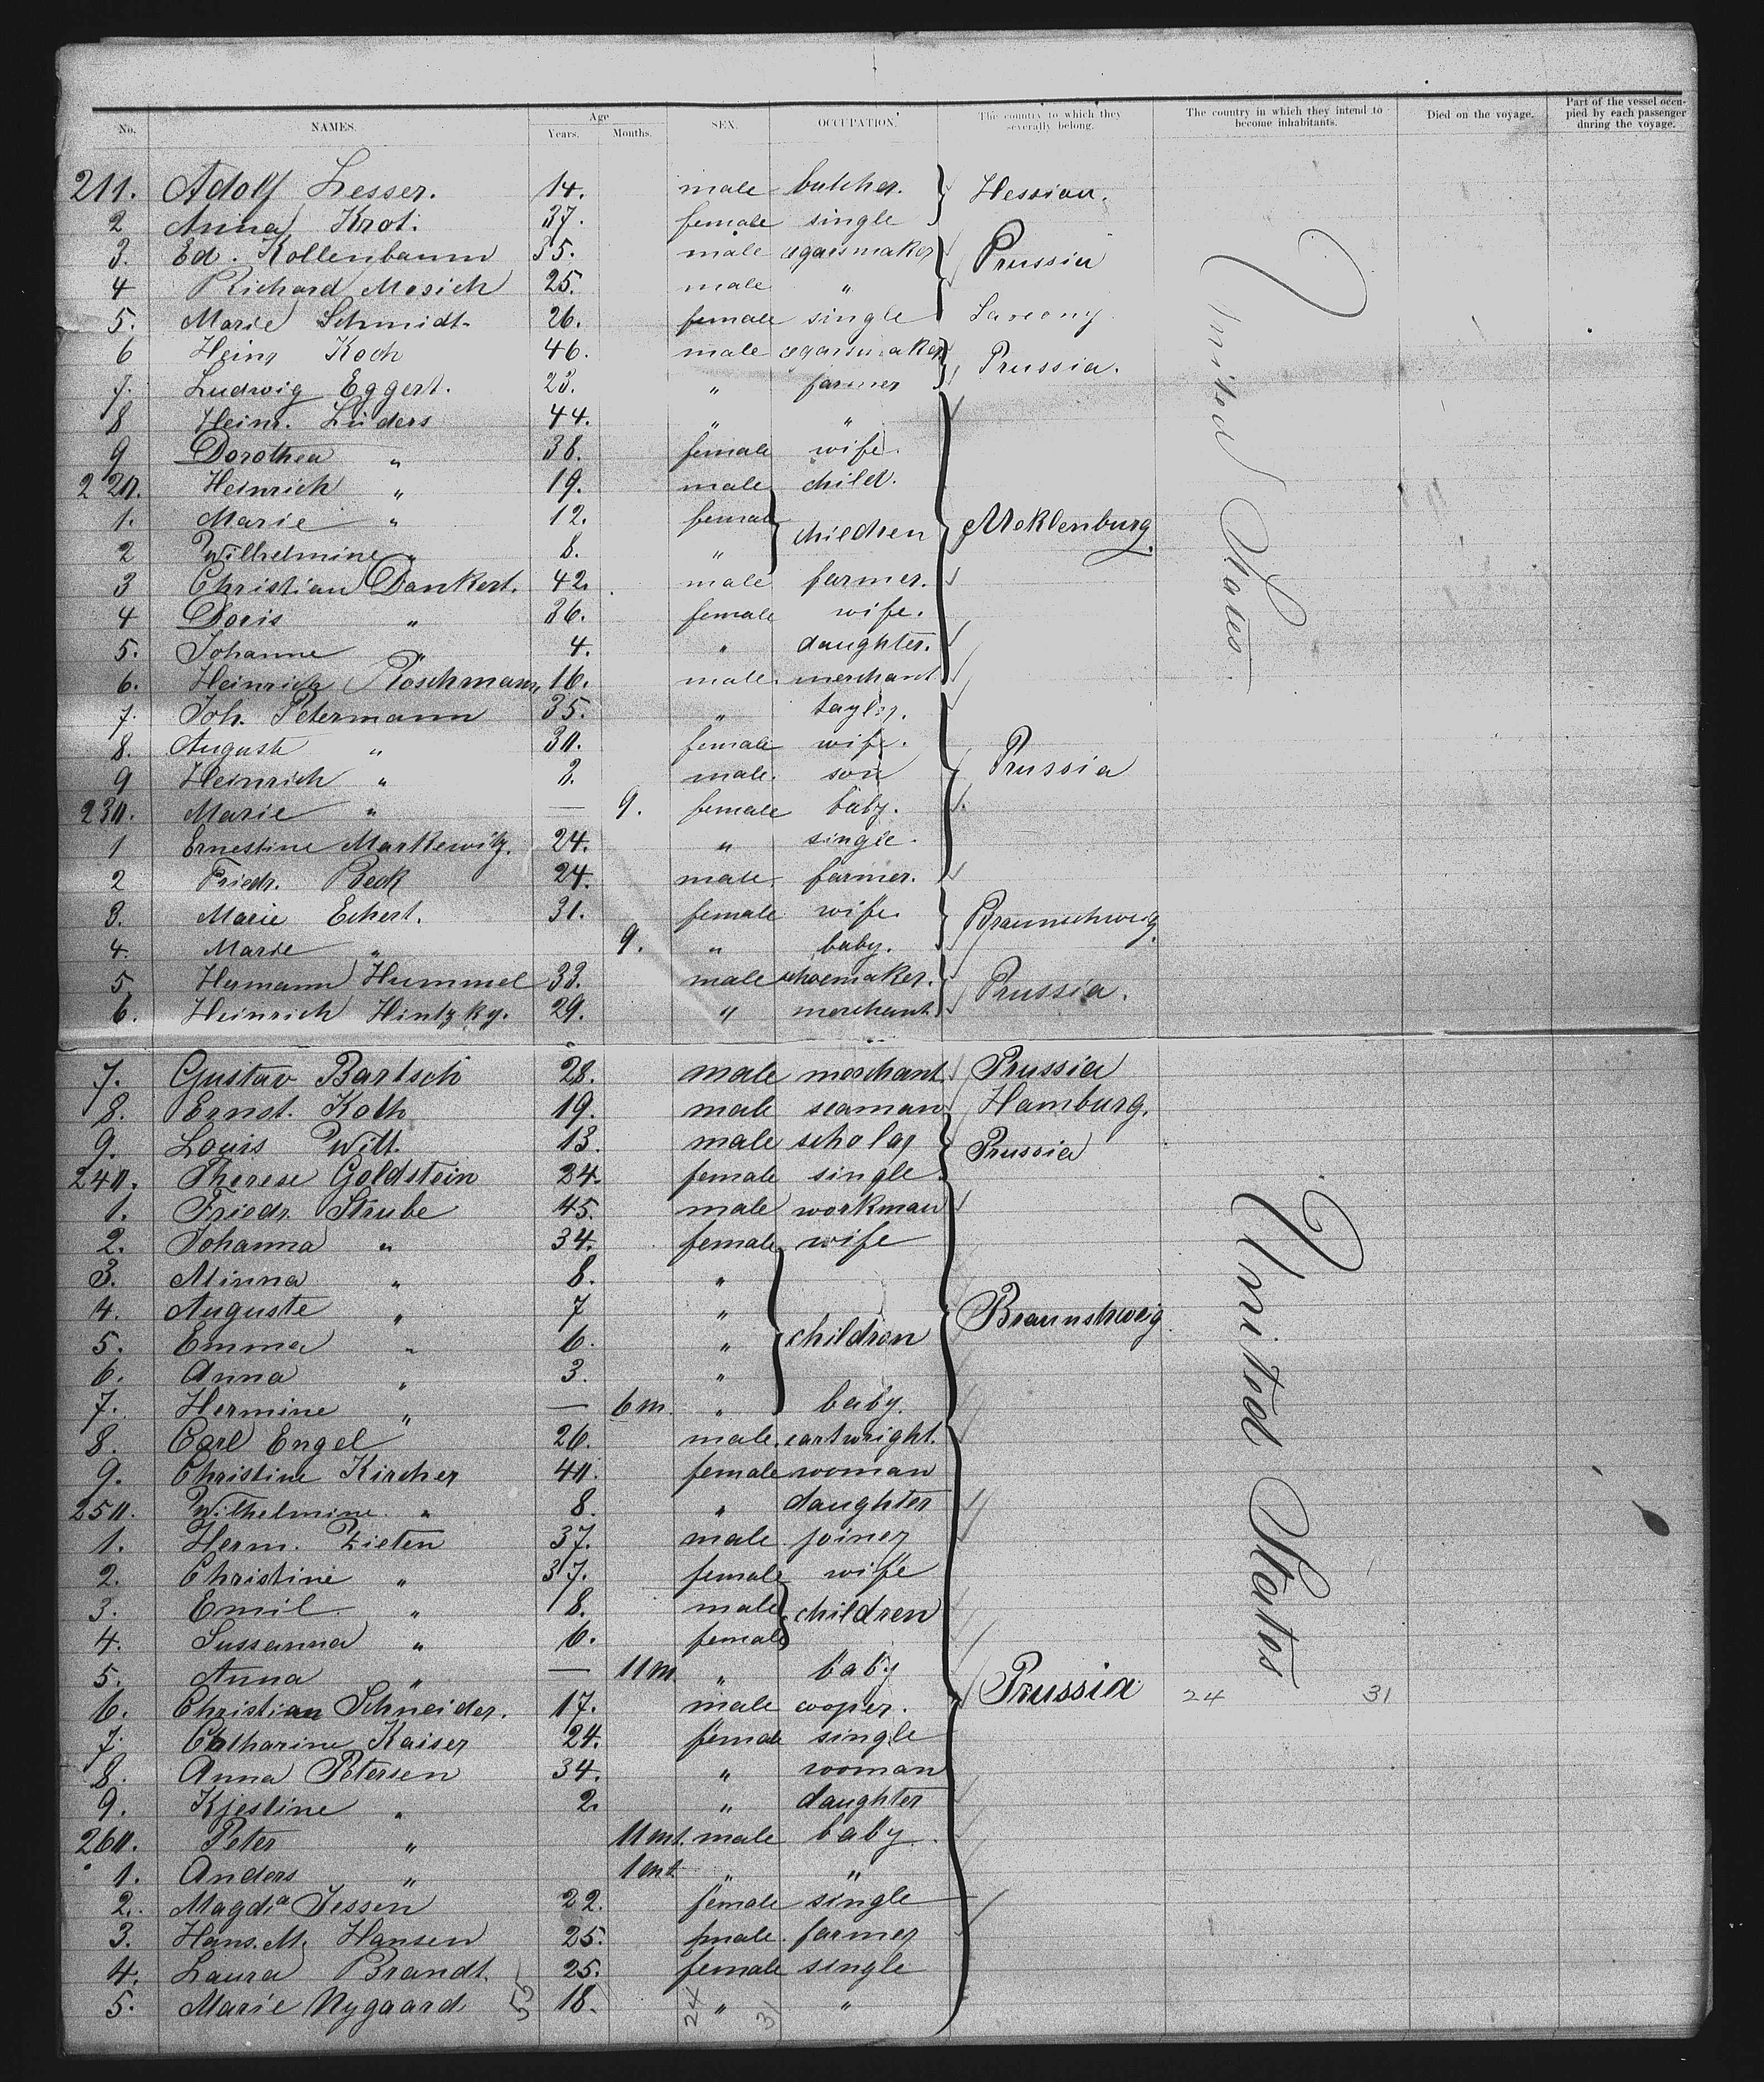 No. NAMES. Age Years. Months. SEX. OCCUPATION. The country to which they severally belong. The country in which they intend to become inhabitants. Died on the voyage. Part of the vessel occupied by each passenger during the voyage.
211. Adolf Lesser. 14. male butcher. Hessian.
2 Anna Krot. 37. female single
3. Ed. Kollenbaum 35. male cgarsmaker Prussia
4 Richard Mosich 25. male "
5. Marie Schmidt. 26. female single Saxony
6 Heinr Koch 46. male cgarsmaker Prussia.
7. Ludwig Eggert. 23. " farmer
8 Heinr. Lüders 44. " "
9 Dorothea " 38. female wife.
220. Heinrich " 19. male child.
1. Marie " 12. female children Meklenburg.
2 Wilhelmine " 8. "
3 Christian Dankert. 42. male farmer.
4 Doris " 36. female wife.
5. Johanne " 4. " daughter.
6. Heinrich Röschmann, 16. male. merchant
7. Joh. Petermann 35. " taylor.
8. Auguste " 30. female wife. Prussia
9 Heinrich " 2. male. son
230. Marie " — 9. female baby.
1 Ernestine Markewitz. 24. " single.
2 Friedr. Beck 24. male. farmer.
3. Marie Eckert. 31. female wife. Braunschweig.
4. Marie " 9. " baby.
5 Hermann Hummel 33. male schoemaker. Prussia.
6. Heinrich Hintzky. 29. " merchant
7. Gustav Bartsch 28. male merchant. Prussia
8. Ernst. Koth 19. male seaman Hamburg.
9. Louis Witt. 13. male scholar Prussia
240. Therese Goldstein 24. female single.
1. Friedr. Strube 45. male workman
2. Johanna " 34. female wife
3. Minna " 8. "
4. Auguste " 7 " Braunshweig
5. Emma " 6. " children
6. Anna " 3. "
7. Hermine " — 6 m. " baby.
8. Carl Engel 26. male. cartwright.
9. Christine Kircher 40. female woman
250. Wilhelmine " 8. " daughter
1. Herm. Zieten 37. male joiner
2. Christine " 37. female wife
3. Emil " 8. male children
4. Sussanna " 6. female
5. Anna " — 11 m. " baby
6. Christian Schneider. 17. male cooper. Prussia 24 31
7. Catharine Kaiser 24. female single
8. Anna Petersen 34. " woman
9. Kjestine " 2. " daughter
260. Peter " 11 mt. male baby.
1. Anders " 1 mt. " "
2. Magda Jessen 22. female single
3. Hans. M. Hansen 25. male. farmer
4. Laura Brandt. 25. female single
5. Marie Nygaard 18. " "
55 24 31
United States
United States